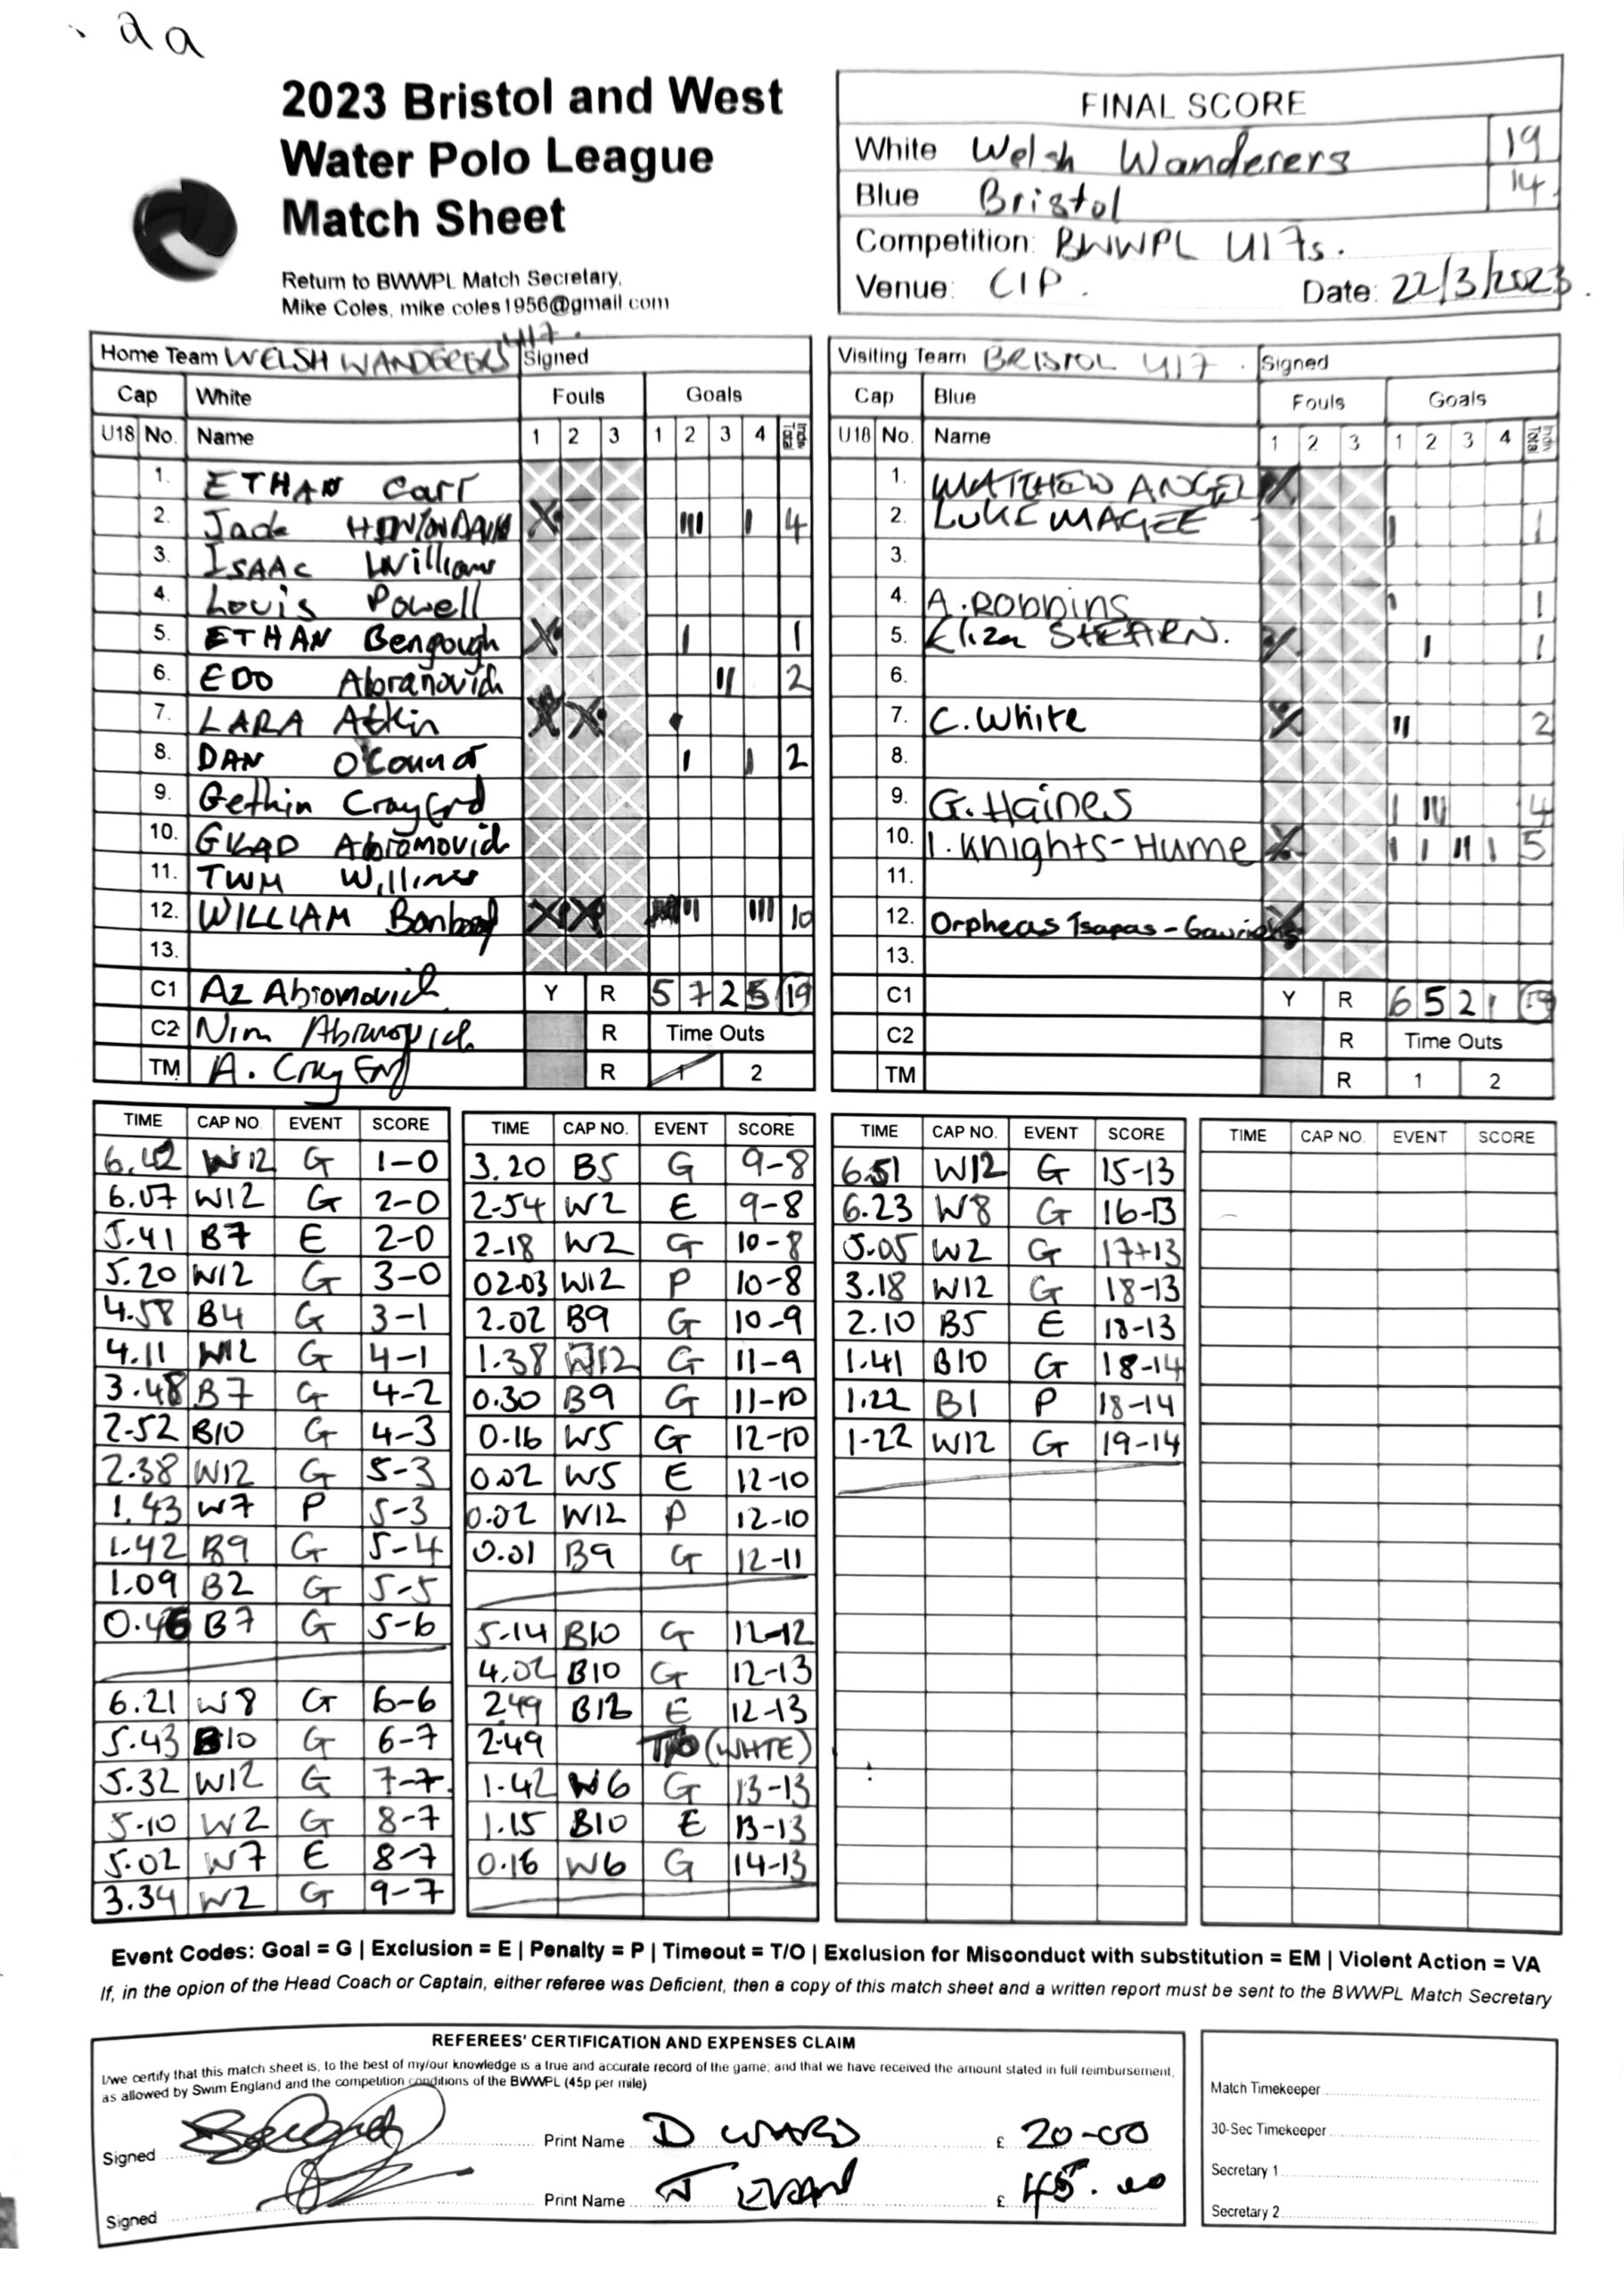 2023 Bristol and West
Water Polo League
Match Sheet
Return to BWWPL Match Secretary,
Mike Coles, mike.coles1956@gmail.com
FINAL SCORE
White Welsh Wanderers 19
Blue Bristol 14
Competition: BWWPL U17s.
Venue: CIP. Date: 22/3/2023.
Home Team WELSH WANDERERS U17. Signed
Cap White Fouls Goals
U18 No. Name 1 2 3 1 2 3 4 Indiv Total
1. ETHAN Carr
2. Jade 4
3. ISAAC Williams
4. Louis Powell
5. ETHAN Bengough 1
6. EDO Abranovich 2
7. LARA Atkin
8. DAN O'Connor 2
9. Gethin Crayford
10. GKAD Abromovich
11. TWM Williams
12. WILLIAM 10
13.
C1 Az Abromovich Y R 5 7 2 5 19
C2 Nim Abramovich R Time Outs
TM A. Crayford R 1 2
Visiting Team BRISTOL U17. Signed
Cap Blue Fouls Goals
U18 No. Name 1 2 3 1 2 3 4 Indiv Total
1. MATTHEW ANGEL
2. LUKE MAGEE 1
3.
4. A. Robbins 1
5. Eliza STEARN. 1
6.
7. C. White 2
8.
9. G. Haines 4
10. I. Knights-Hume 5
11.
12. Orpheas Tsapas-
13.
C1 Y R 6 5 2 1 14
C2 R Time Outs
TM R 1 2
TIME CAP NO. EVENT SCORE
6.42 W12 G 1-0
6.07 W12 G 2-0
5.41 B7 E 2-0
5.20 W12 G 3-0
4.58 B4 G 3-1
4.11 W12 G 4-1
3.48 B7 G 4-2
2.52 B10 G 4-3
2.38 W12 G 5-3
1.43 W7 P 5-3
1.42 B9 G 5-4
1.09 B2 G 5-5
0.46 B7 G 5-6
6.21 W8 G 6-6
5.43 B10 G 6-7
5.32 W12 G 7-7
5.10 W2 G 8-7
5.02 W7 E 8-7
3.34 W2 G 9-7
TIME CAP NO. EVENT SCORE
3.20 B5 G 9-8
2.54 W2 E 9-8
2.18 W2 G 10-8
02.03 W12 P 10-8
2.02 B9 G 10-9
1.38 W12 G 11-9
0.30 B9 G 11-10
0.16 W5 G 12-10
0.02 W5 E 12-10
0.02 W12 P 12-10
0.01 B9 G 12-11
5.14 B10 G 12-12
4.02 B10 G 12-13
2.49 B12 E 12-13
2.49 T/O (WHITE)
1.42 W6 G 13-13
1.15 B10 E 13-13
0.16 W6 G 14-13
TIME CAP NO. EVENT SCORE
6.51 W12 G 15-13
6.23 W8 G 16-13
5.05 W2 G 17-13
3.18 W12 G 18-13
2.10 B5 E 18-13
1.41 B10 G 18-14
1.22 B1 P 18-14
1.22 W12 G 19-14
TIME CAP NO. EVENT SCORE
Event Codes: Goal = G | Exclusion = E | Penalty = P | Timeout = T/O | Exclusion for Misconduct with substitution = EM | Violent Action = VA
If, in the opion of the Head Coach or Captain, either referee was Deficient, then a copy of this match sheet and a written report must be sent to the BWWPL Match Secretary
REFEREES' CERTIFICATION AND EXPENSES CLAIM
I/we certify that this match sheet is, to the best of my/our knowledge is a true and accurate record of the game; and that we have received the amount stated in full reimbursement,
as allowed by Swim England and the competition conditions of the BWWPL (45p per mile)
Signed Print Name D WARD £ 20-00
Signed Print Name EVAN £ 45.00
Match Timekeeper
30-Sec Timekeeper
Secretary 1
Secretary 2